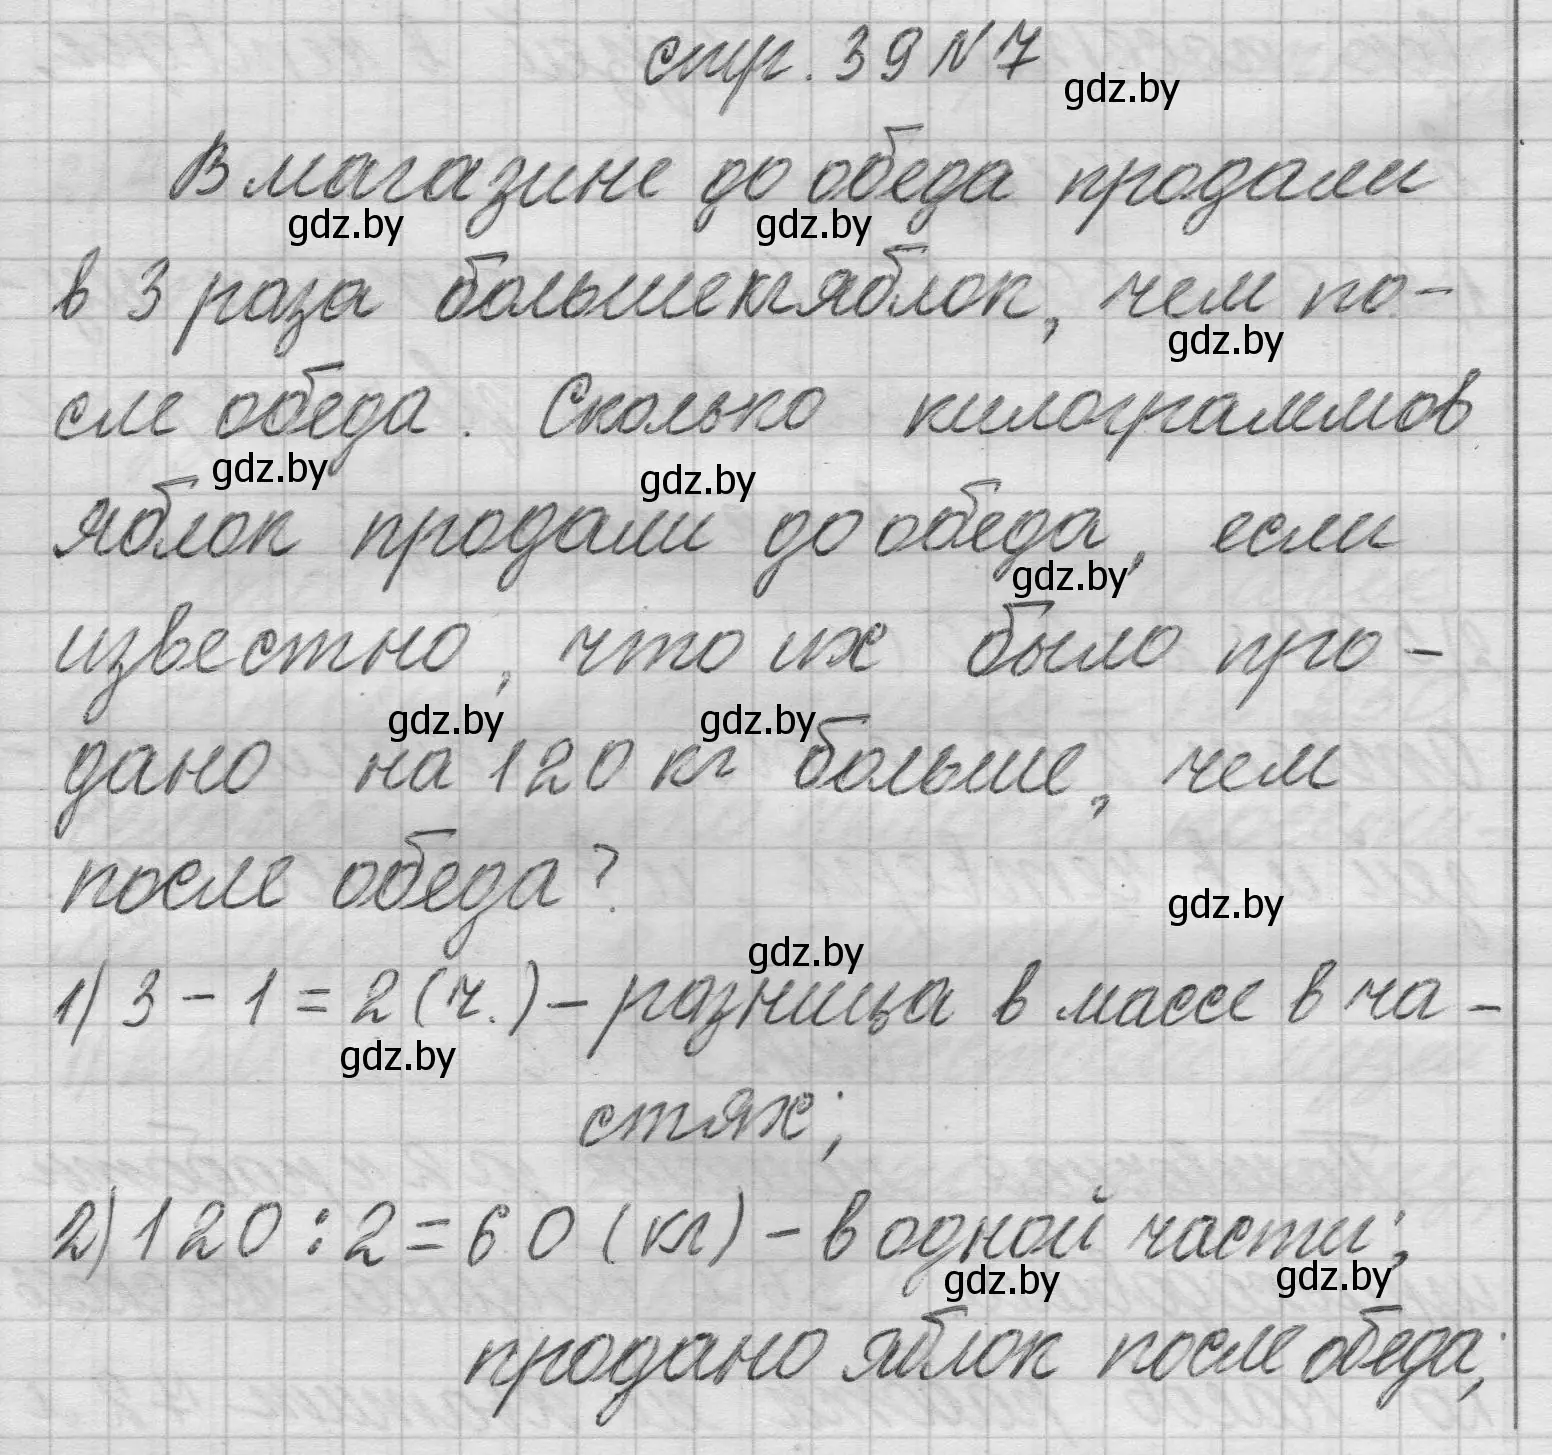 стр. 39 N 7
gdz.by
В магазине до обеда продали
gdz.by gdz.by
в 3 раза больше кг яблок, чем по-
gdz.by
сле обеда. Сколько килограммов
gdz.by gdz.by
яблок продали до обеда, если
gdz.by
известно, что их было про-
gdz.by gdz.by
дано на 120 кг больше, чем
после обеда?
gdz.by
gdz.by
1) 3 - 1 = 2 (ч.) - разница в массе в ча-
gdz.by
стях;
2) 120 : 2 = 60 (кг) - в одной части;
gdz.by gdz.by
продано яблок после обеда;